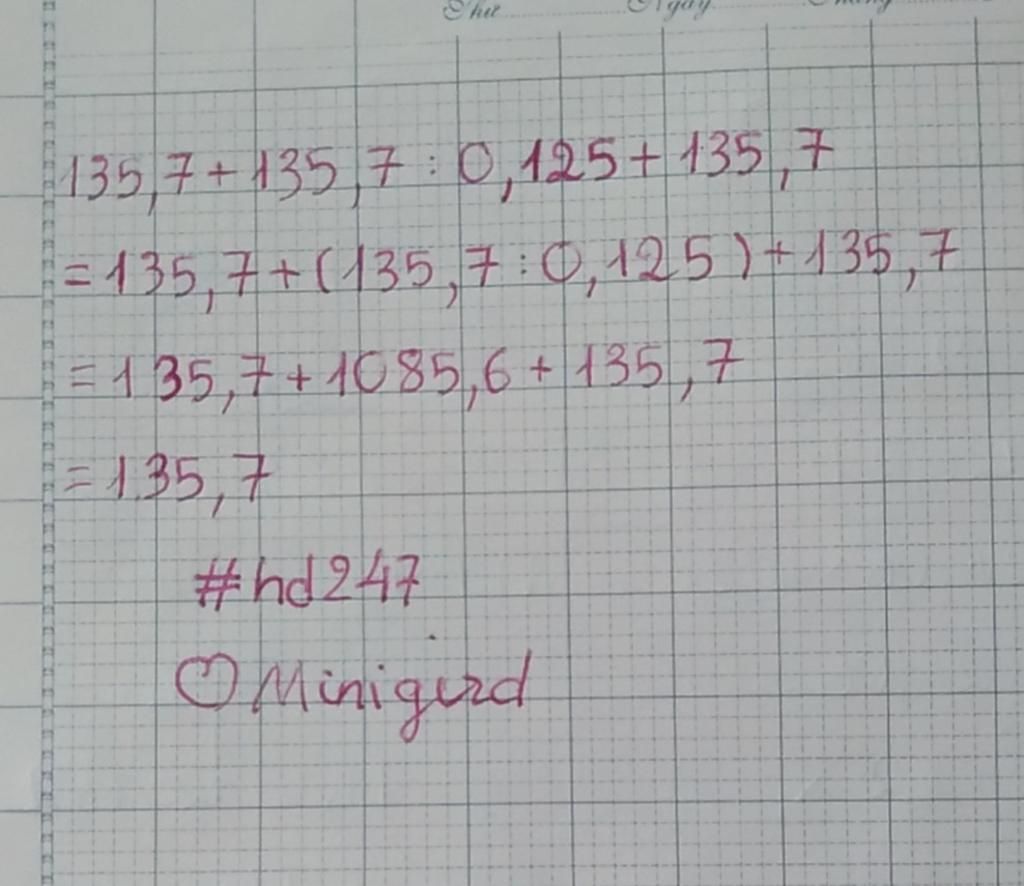 Thứ Ngày Tháng
135,7+135,7:0,125+135,7
=135,7+(135,7:0,125)+135,7
=135,7+1085,6+135,7
=135,7
#hd247